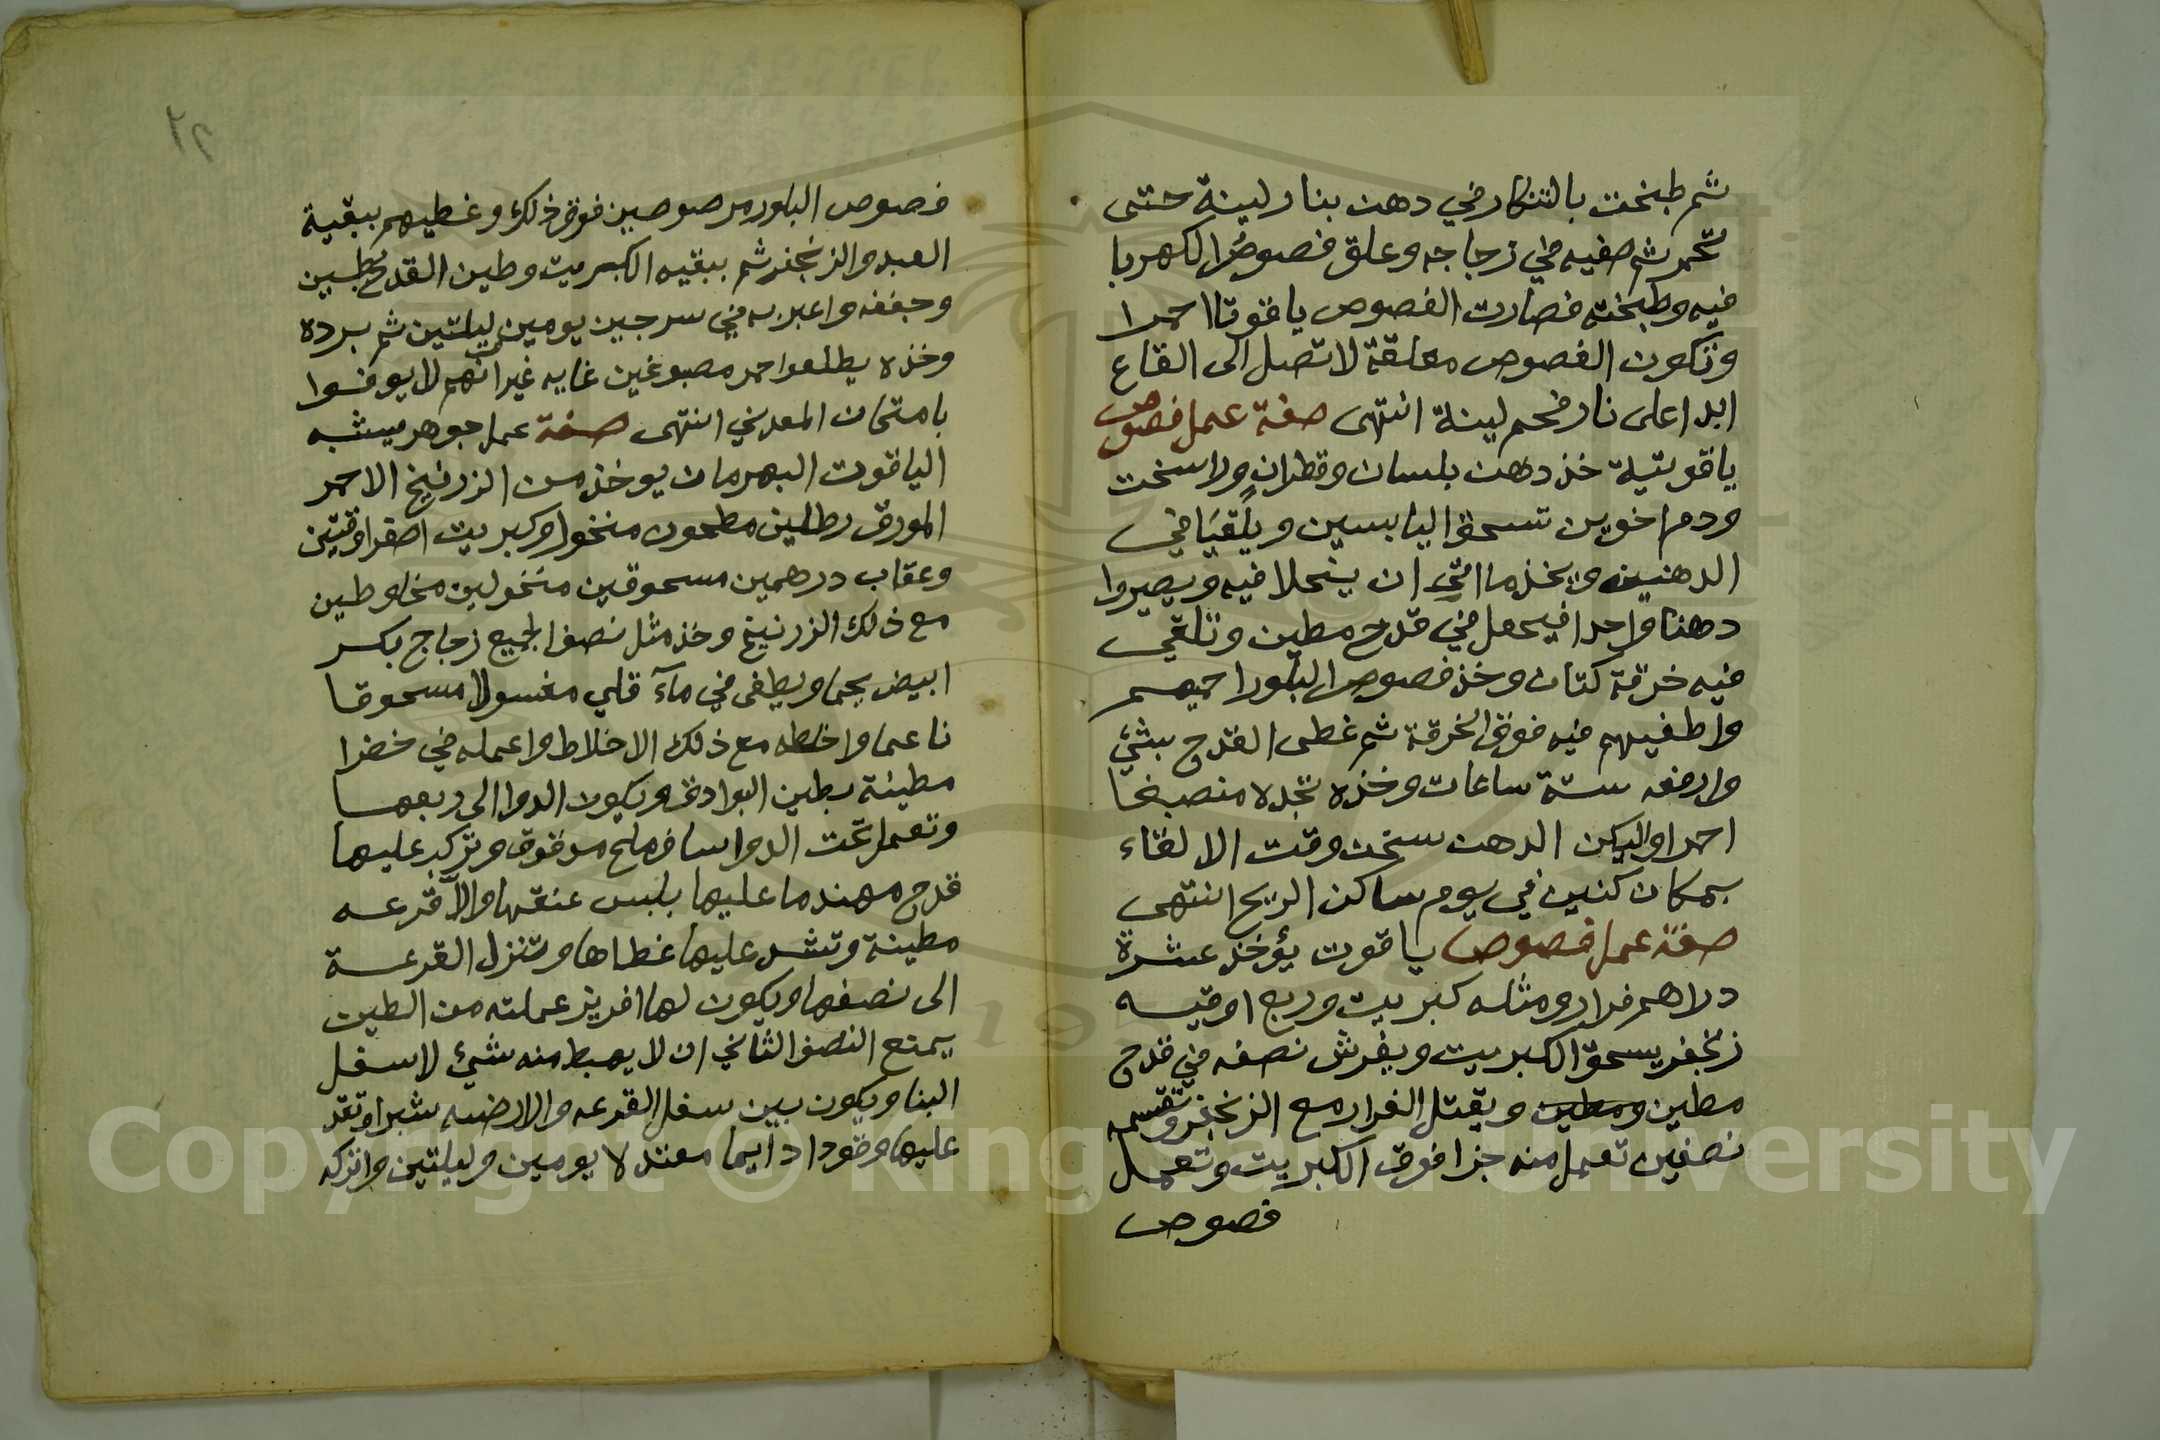 ثم طبخت بالتنكار في دهن بنار لينة حتى
تحمر ثم صفيه في زجاجه وعلق فصوص الكهربا
فيه وطبخته فصارت الفصوص ياقوتا احمرا
وتكون الفصوص معلقة لا تصل الى القاع
ابدا على نار فحم لينة انتهى صفة عمل فصوص
ياقوتية خذ دهن بلسان وقطران وراسخت
ودم اخوين تسحق اليابسين ويلقيا في
الدهنين ويخذما الى ان ينحلا فيه ويصيروا
دهنا واحدا فيحمل في قدح مطين وتلقي
فيه خرقة كتان وخذ فصوص البلور احميهم
واطفيهم فيه فوق الخرقة ثم غطى القدح بشئ
وارفعه ستة ساعات وخذه تجده منصبغا
احمرا وليكن الدهن سخن وقت الالقاء
بمكان كنين في يوم ساكن الريح انتهى
صفة عمل فصوص ياقوت يؤخذ عشرة
دراهم فرار ومثله كبريت وربع اوقيه
زنجفر يسحق الكبريت ويفرش نصفه في قدح
مطين ومطين ويقتل الفرار مع الزنجفر وتقسمه
نصفين تعمل منه جزا فوق الكبريت وتعمل
فصوص
٢٢
فصوص البلور مرصوصين فوق ذلك وغطيهم ببقية
العبد والزنجفر ثم ببقيه الكبريت وطين القدح بطين
وجففه واعبر به في سرجين يومين ليلتين ثم برده
وخذه يطلعوا حمر مصبوغين غايه غير انهم لا يوفوا
بامتحان المعدني انتهى صفة عمل جوهر يشبه
الياقوت البهرمان يوخذ من الزرنيخ الاحمر
المورق رطلين مطحون منخول وكبريت اصفر اوقيتين
وعقاب درهمين مسحوقين منخولين مخلوطين
مع ذلك الزرنيخ وخذ مثل نصف الجميع زجاج بكر
ابيض يحما ويطفى في مآء قلي مغسولا مسحوقا
ناعما واخلطه مع ذلك الاخلاط واعمله في خضرا
مطينة بطين البوادق ويكون الدوا الى ربعها
وتعمل تحت الدوا ساف ملح مدقوق وتركب عليها
قدح مهندما عليها بلبس عنقها والا قرعه
مطينة وتشد عليها غطاها وتنزل القرعة
الى نصفها ويكون لها افريز عملته من الطين
يمنع النصف الثاني ان لا يهبط منه شيئ لاسفل
البنا ويكون بين سفل القرعه والارضيه شبرا وتقد
عليها وقودا دايما معتدلا يومين وليلتين واتركه
Copyright © King Saud University